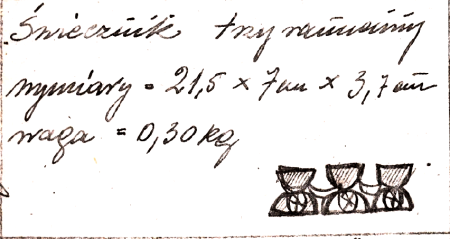 Świecznik trzy ramienny
wymiary = 21,5 x 7cm x 3,7cm
waga = 0,30 kg